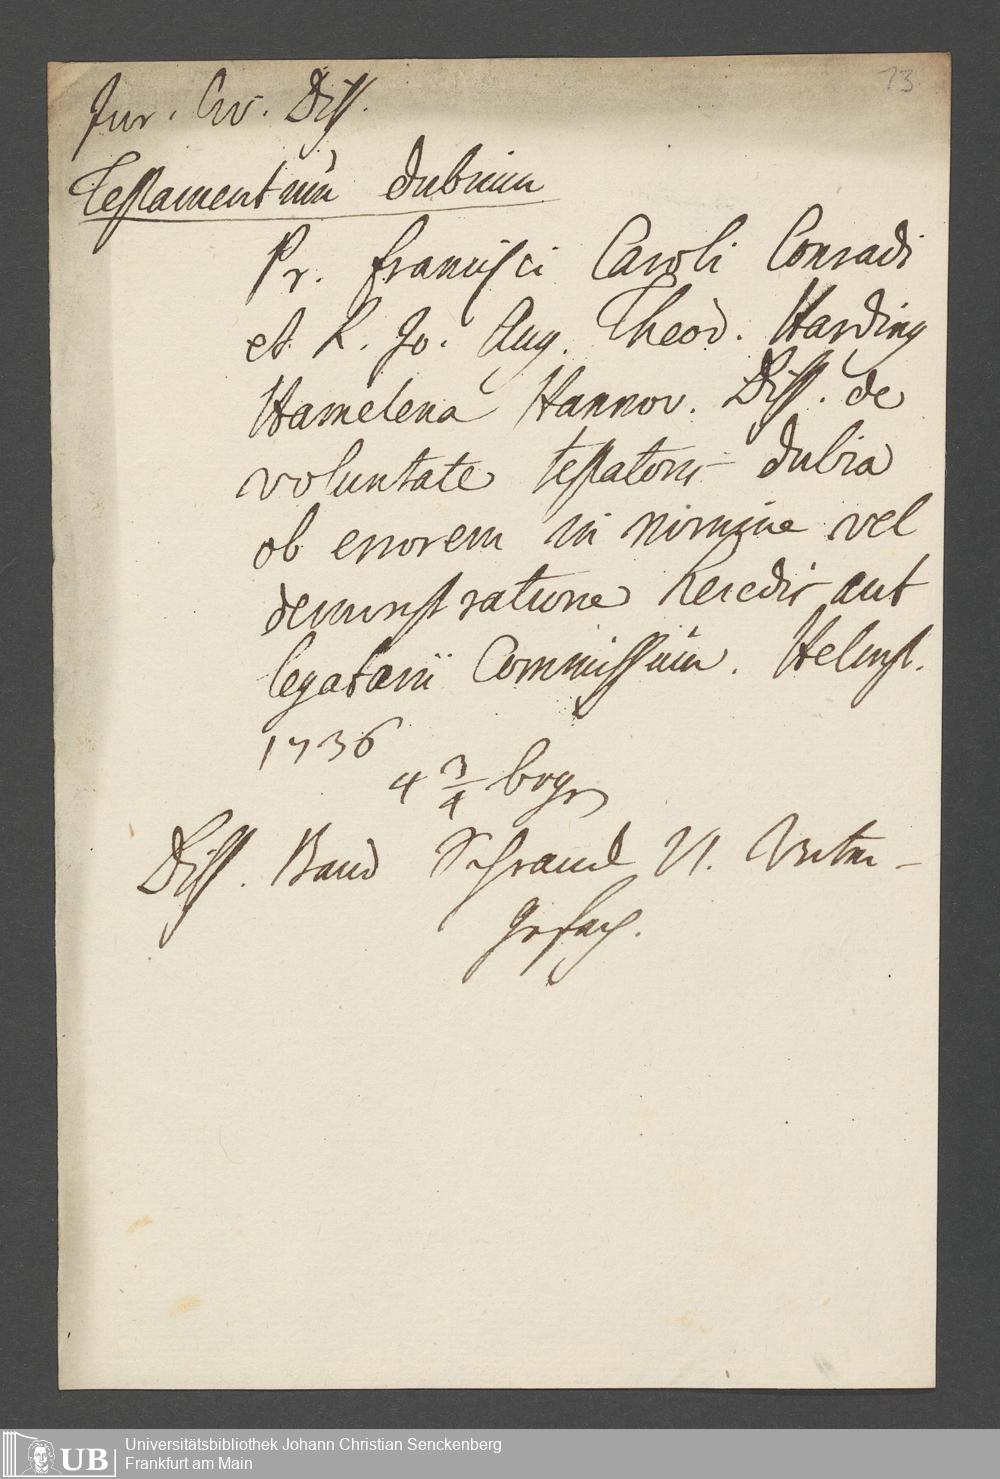 73
Jur. Civ. Diss.
Testamentum dubium
Pr. Francisci Caroli Conradi
et R. Jo. Aug. Theod. Harding
Hamelena Hannov. Diss. de
voluntate testatoris dubia
ob errorem in nomine vel
demonstratione heredis aut
legatarii Commissum. Helmst.
1736
4 3/4 bogn
Diss. Band Schrank VI. Unter-
gefach.
UB
Universitätsbibliothek Johann Christian Senckenberg
Frankfurt am Main